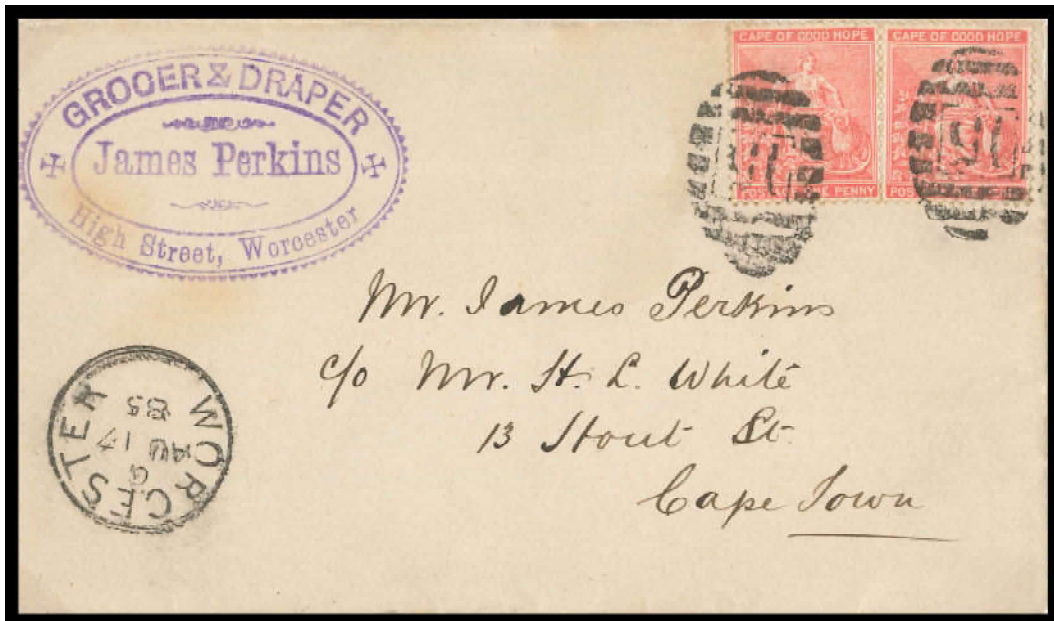 GROCER & DRAPER
James Perkins
High Street, Worcester
CAPE OF GOOD HOPE
POSTAGE ONE PENNY
CAPE OF GOOD HOPE
Mr. James Perkins
c/o Mr. H. L. White
13 Hout St.
Cape Town
WORCESTER
G
AU 17
85